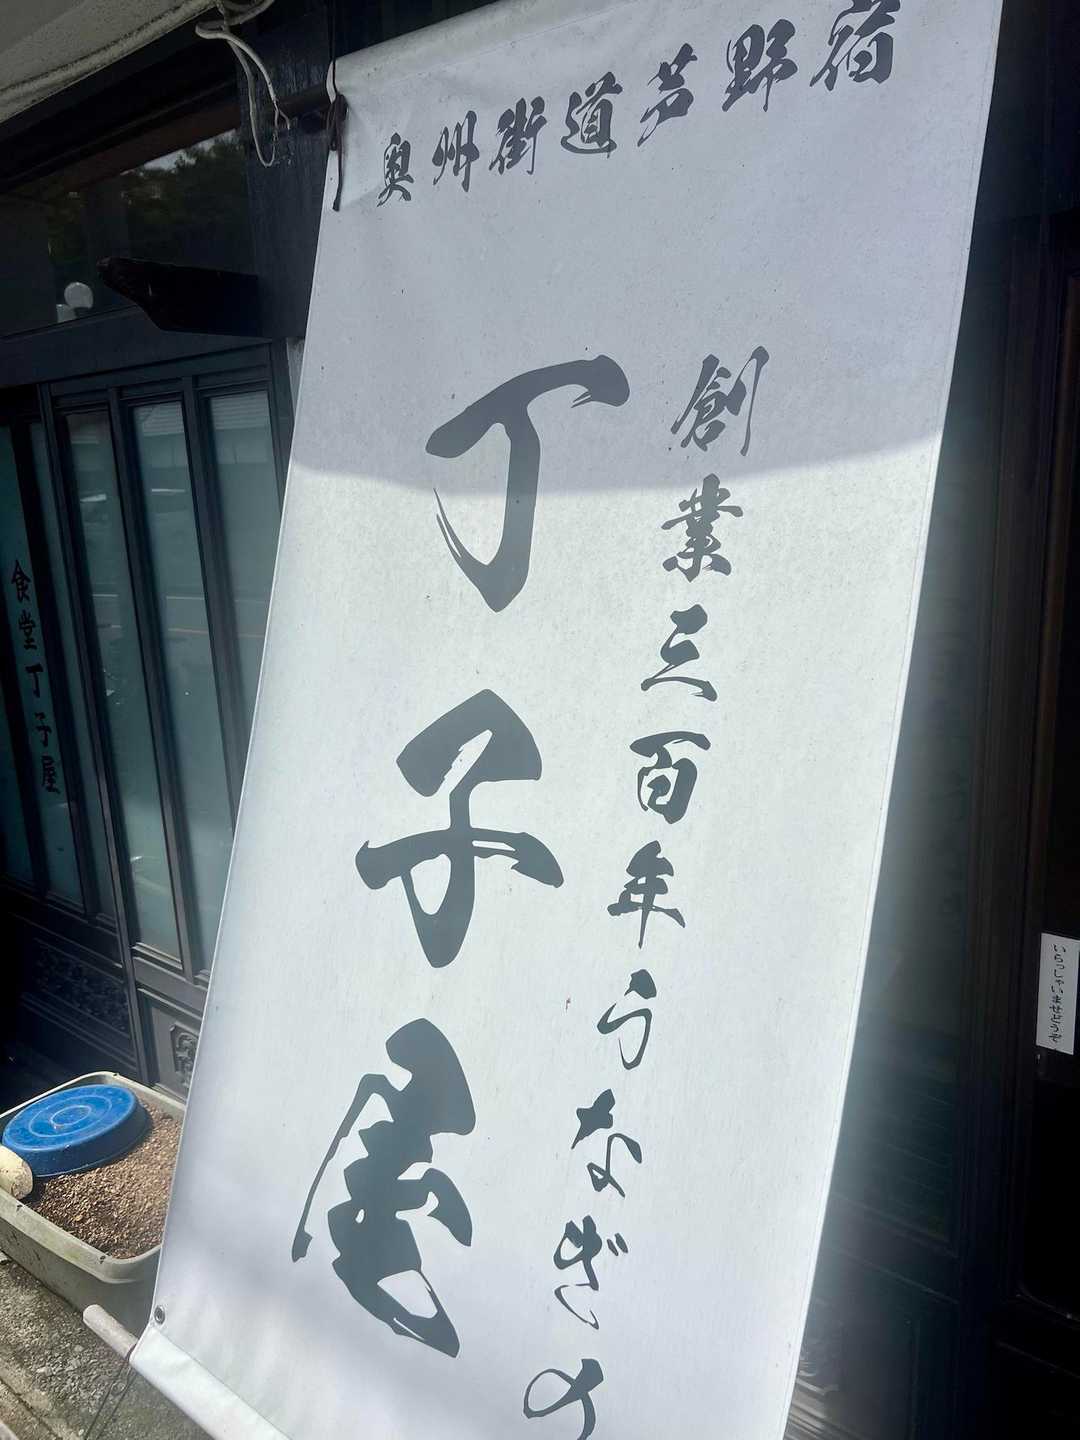 奥州街道芦野宿
創業三百年うなぎの
丁子屋
食堂丁子屋
いらっしゃいませどうぞ